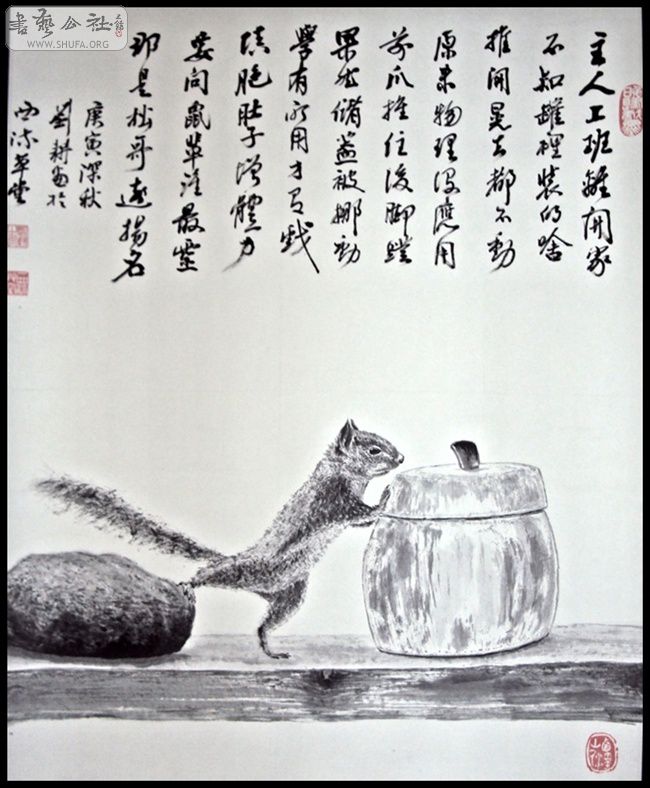 書藝公社
WWW.SHUFA.ORG
主人上班離開家
不知罐裡裝的啥
推開晃去都不動
原來物理沒應用
前爪推住後腳蹬
果然儲蓋被挪動
學有所用才有戲
填飽肚子增體力
要問鼠輩誰最靈
那是松哥遠揚名
庚寅深秋
劉耕畫於
草堂